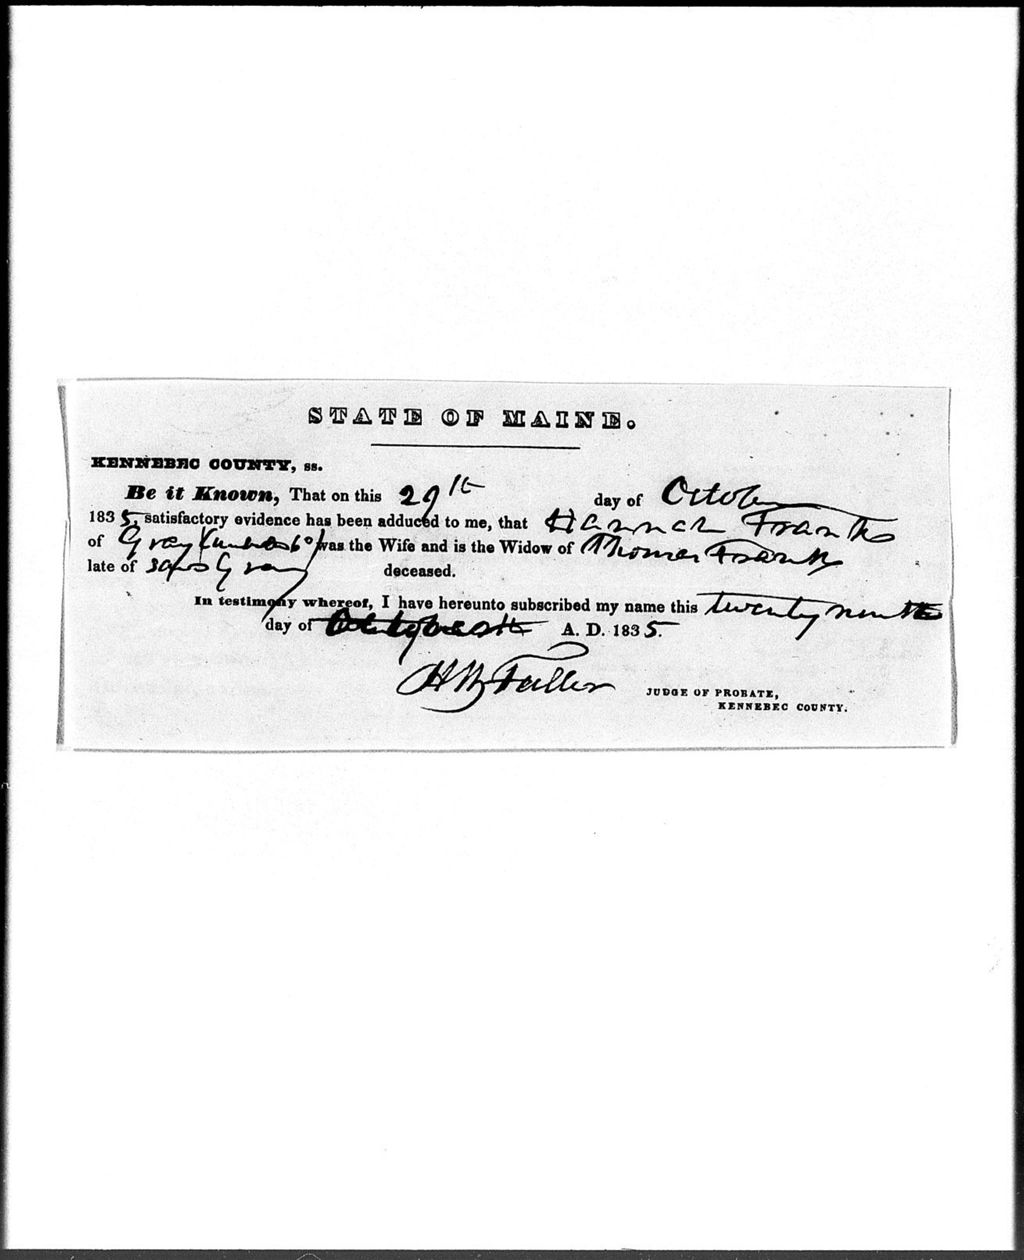 STATE OF MAINE.
KENNEBEC COUNTY, ss.
Be it Known, That on this 29th day of October
1835, satisfactory evidence has been adduced to me, that Hannah Frank
of Gray was the Wife and is the Widow of Thomas Frank
late of Gray deceased.
In testimony whereof, I have hereunto subscribed my name this twenty ninth
day of October A. D. 1835.
H W Fuller JUDGE OF PROBATE,
KENNEBEC COUNTY.